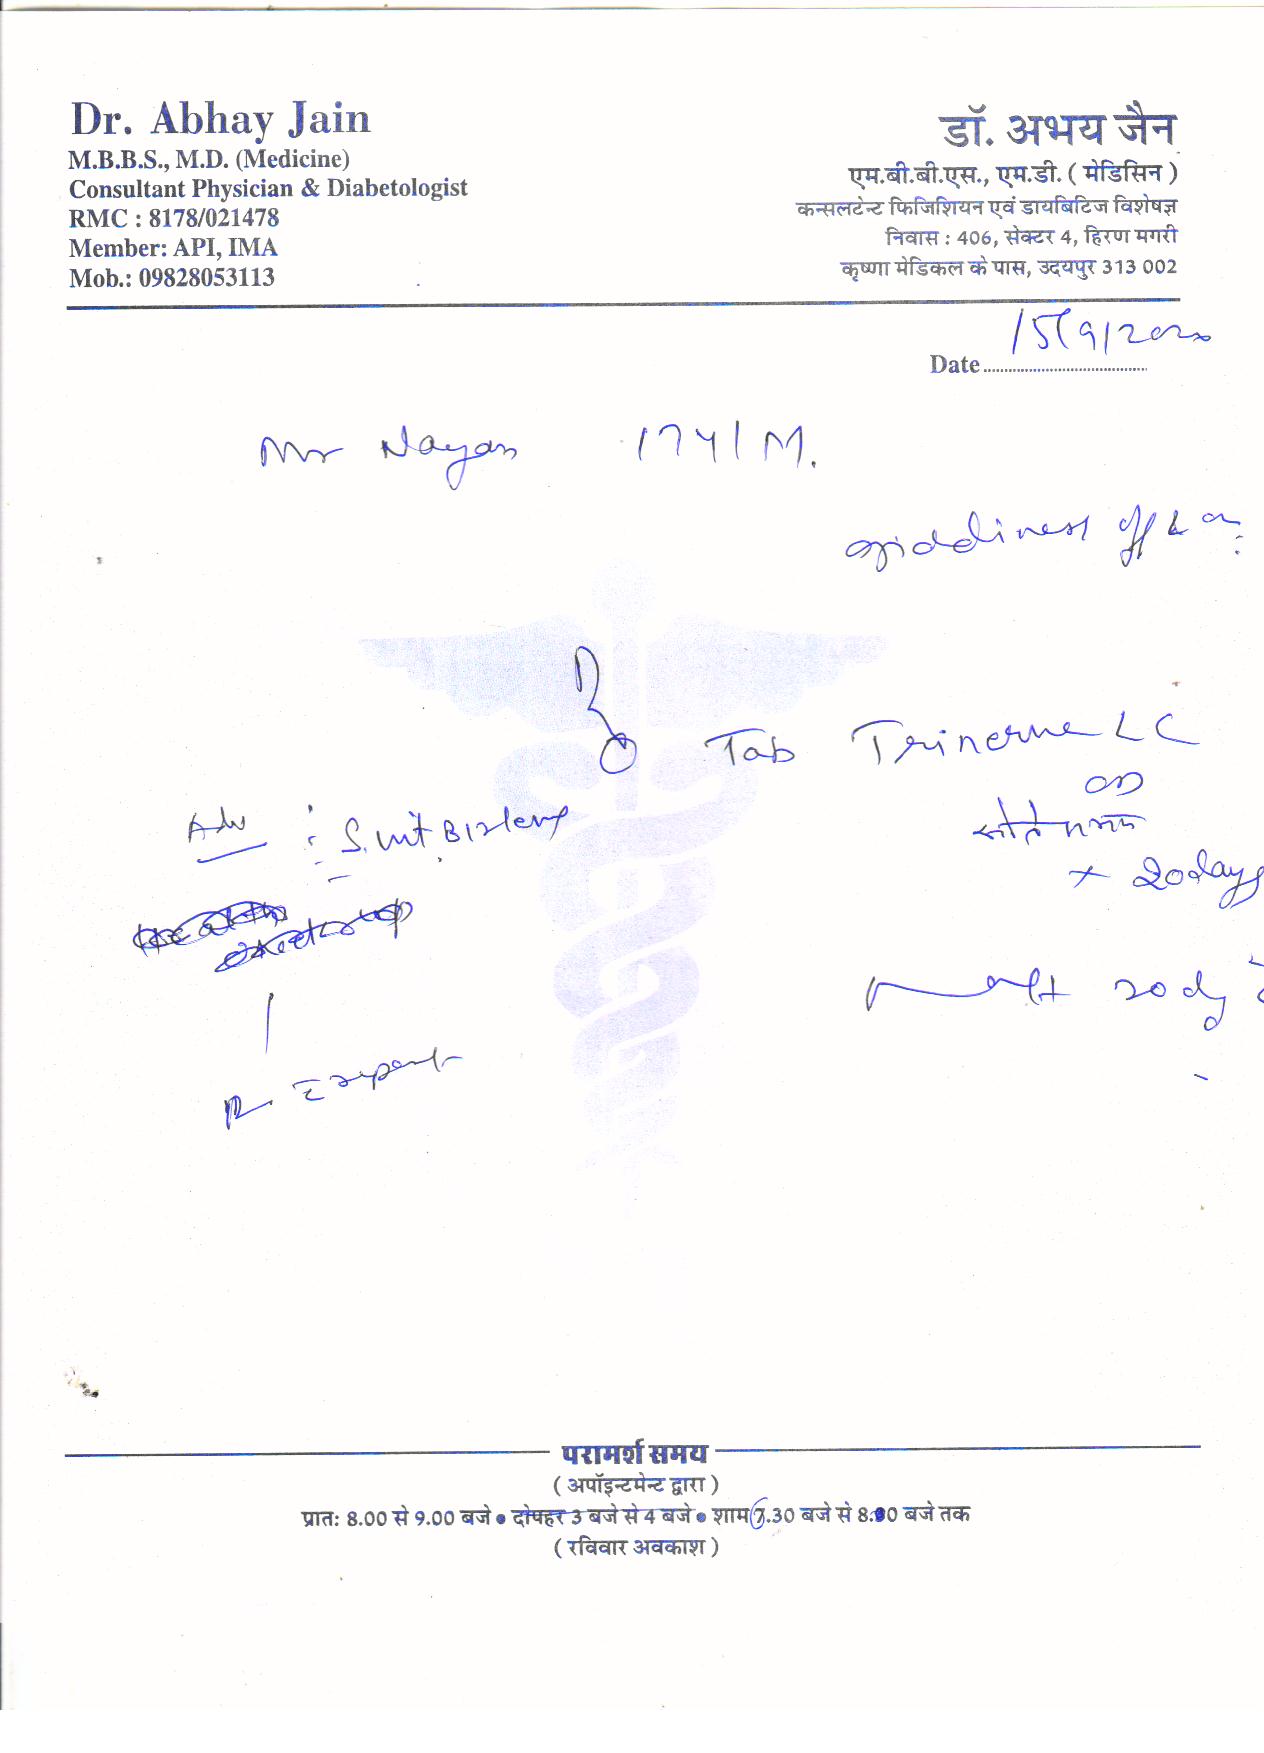 Dr. Abhay Jain
M.B.B.S., M.D. (Medicine)
Consultant Physician & Diabetologist
RMC : 8178/021478
Member: API, IMA
Mob.: 09828053113
डॉ. अभय जैन
एम.बी.बी.एस., एम.डी. ( मेडिसिन )
कन्सलटेन्ट फिजिशियन एवं डायबिटिज विशेषज्ञ
निवास : 406, सेक्टर 4, हिरण मगरी
कृष्णा मेडिकल के पास, उदयपुर 313 002
Date 15/9/2020
Mr Nayan 17y/M.
giddiness off & on
Tab Trinerve LC
OD
सोते समय
x 20 days
Adv : S. Vit B12 level
20 dy
परामर्श समय
( अपॉइन्टमेन्ट द्वारा )
प्रात: 8.00 से 9.00 बजे • दोपहर 3 बजे से 4 बजे • शाम 6.30 बजे से 8.00 बजे तक
( रविवार अवकाश )